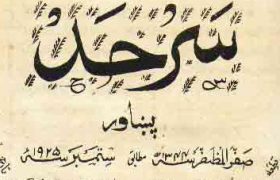 سرحد
پشاور
صفر المظفر سنہ ۱۳۴۴ھ مطابق ستمبر سنہ ۱۹۲۵ء